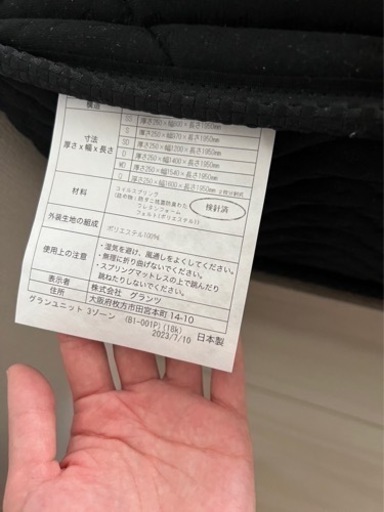 構造
SS 厚さ250×幅800×長さ1950mm
S 厚さ250×幅970×長さ1950mm
寸法 SD 厚さ250×幅1200×長さ1950mm
厚さx幅x長さ D 厚さ250×幅1400×長さ1950mm
WD 厚さ250×幅1540×長さ1950mm
Q 厚さ250×幅1600×長さ1950mm
材料 コイルスプリング
(詰め物)防ダニ抗菌防臭わた
ウレタンフォーム
フェルト(ポリエステル)
検針済
外装生地の組成 ポリエステル100%
使用上の注意 ・湿気を避け、風通しをよくしてください。
・無理に折り曲げないでください。
・スプリングマットレスの上で跳んだり
跳ねたりしないでください。
表示者 株式会社 グランツ
住所 大阪府枚方市田宮本町 14-10
グランユニット 3ゾーン (B1-001P)(18k) 日本製
2023/7/10